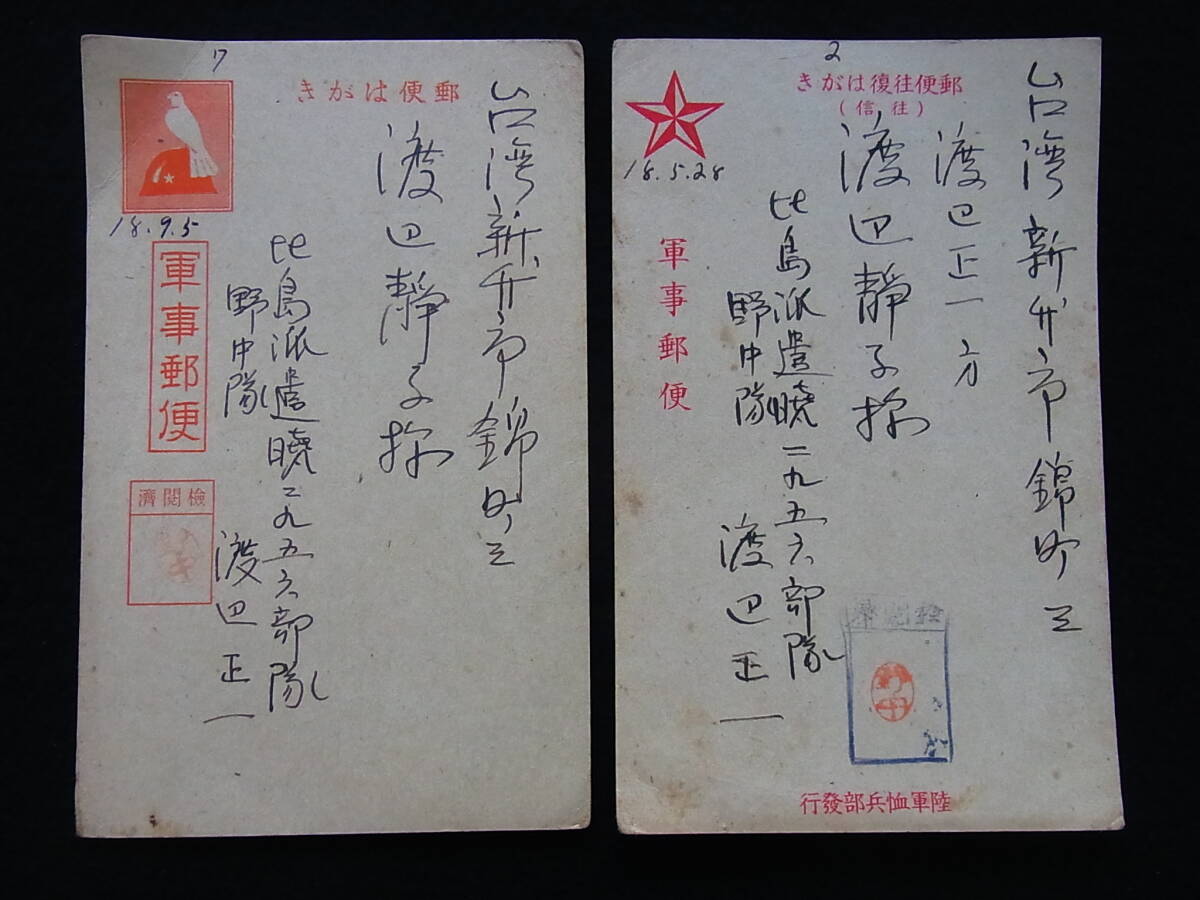 ワ
郵便はがき
18.9.5
軍事郵便
檢閱濟
台湾新竹市錦町三
渡辺靜子様
比島派遣暁二九五六部隊
野中隊
渡辺正一
2
郵便往復はがき
(往信)
18.5.28
軍事郵便
台湾新竹市錦町三
渡辺正一方
渡辺靜子様
比島派遣暁二九五六部隊
野中隊
渡辺正一
陸軍恤兵部發行